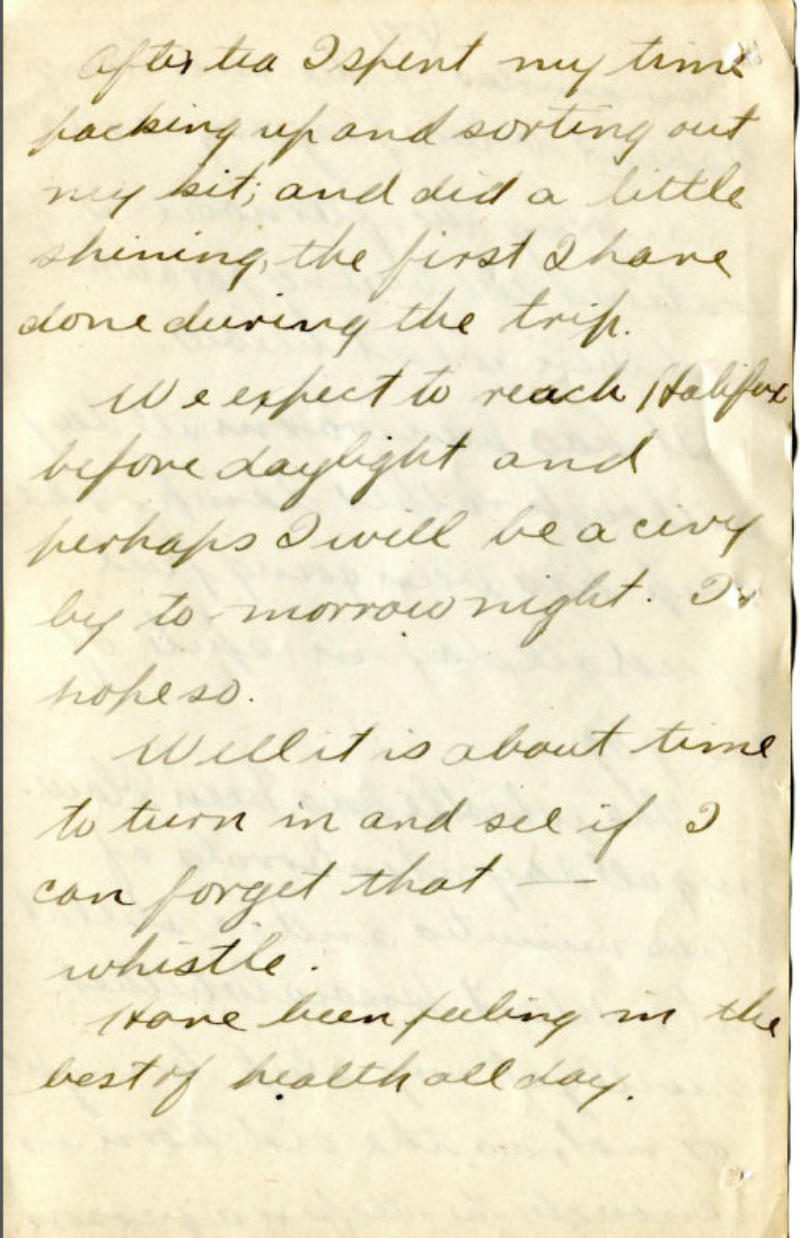 After tea I spent my time
packing up and sorting out
my kit; and did a little
shining, the first I have
done during the trip.
We expect to reach Halifax
before daylight and
perhaps I will be a civy
by to-morrow night. I
hope so.
Well it is about time
to turn in and see if I
can forget that —
whistle.
Have been feeling in the
best of health all day.